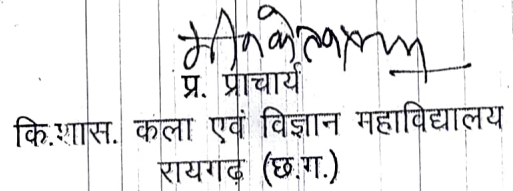 प्र. प्राचार्य
कि.शास. कला एवं विज्ञान महाविद्यालय
रायगढ़ (छ.ग.)